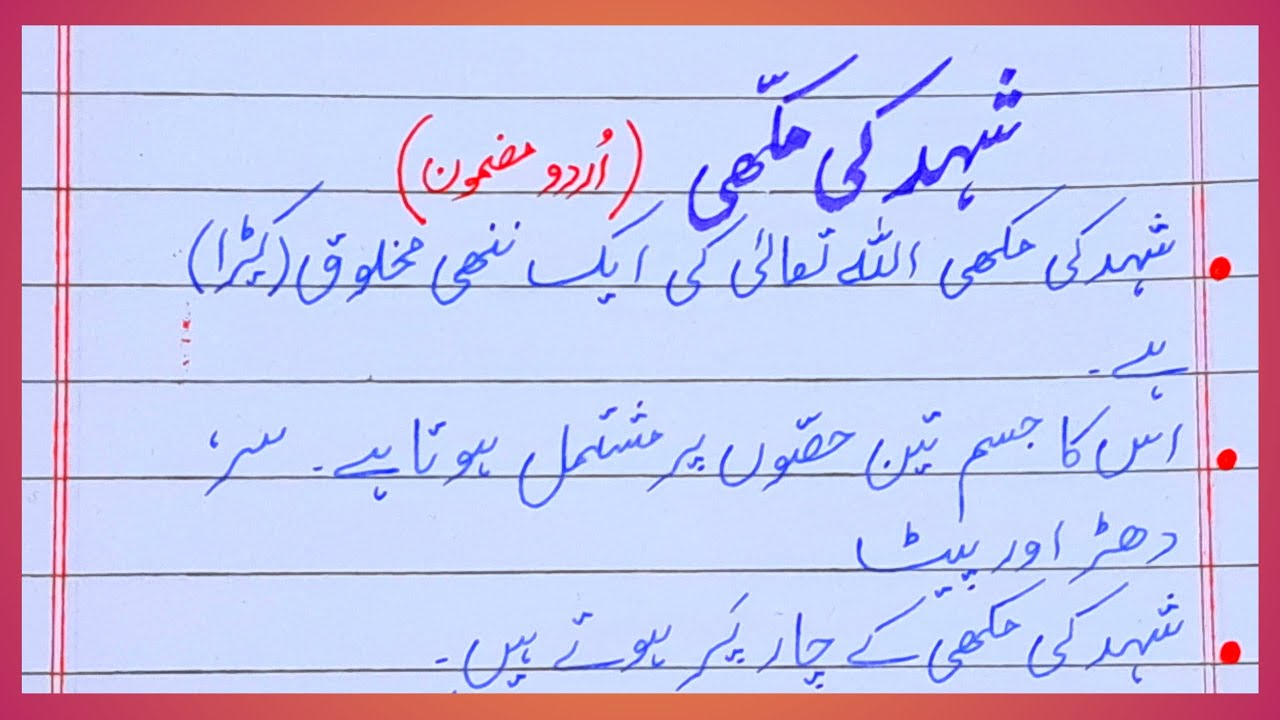 شہد کی مکھّی (اُردو مضمون)
شہد کی مکھی اللہ تعالیٰ کی ایک ننھی مخلوق (کیڑا)
ہے۔
اس کا جسم تین حصّوں پر مشتمل ہوتا ہے۔ سر،
دھڑ اور پیٹ
شہد کی مکھی کے چار پَر ہوتے ہیں۔